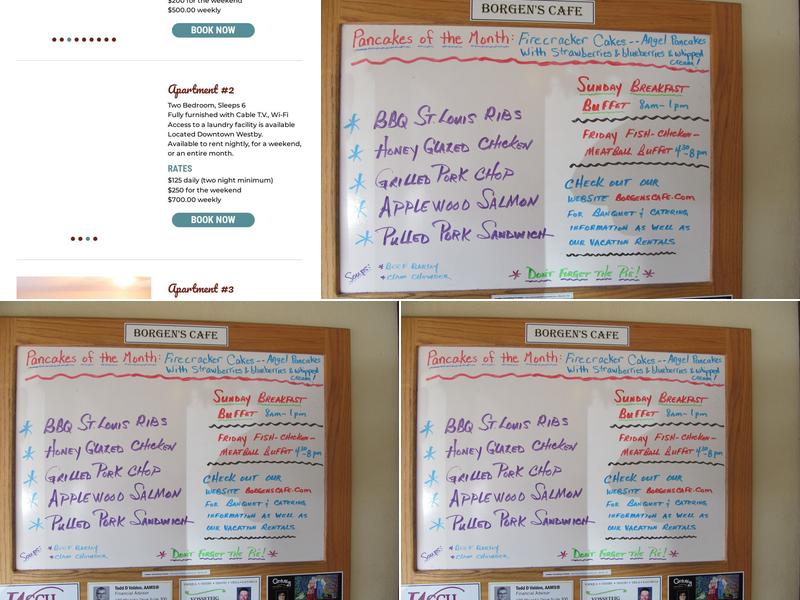 $200 for the weekend
$500.00 weekly
BOOK NOW
Apartment #2
Two Bedroom, Sleeps 6
Fully furnished with Cable T.V., Wi-Fi
Access to a laundry facility is available
Located Downtown Westby.
Available to rent nightly, for a weekend,
or an entire month.
RATES
$125 daily (two night minimum)
$250 for the weekend
$700.00 weekly
BOOK NOW
Apartment #3
BORGEN'S CAFE
Pancakes of the Month: Firecracker Cakes -- Angel Pancakes
With Strawberries & blueberries & whipped
cream!
BBQ St Louis Ribs
Honey Glazed Chicken
Grilled Pork Chop
Applewood Salmon
Pulled Pork Sandwich
Soups: *Beef Barley
*Clam Chowder
Sunday Breakfast
Buffet 8am-1pm
Friday Fish-Chicken-
Meatball Buffet 4:30-8pm
Check out our
website Borgenscafe.com
for Banquet & Catering
information as well as
our vacation rentals
*Don't Forget the Pie!*
BORGEN'S CAFE
Pancakes of the Month: Firecracker Cakes -- Angel Pancakes
With Strawberries & blueberries & whipped
cream!
BBQ St Louis Ribs
Honey Glazed Chicken
Grilled Pork Chop
Applewood Salmon
Pulled Pork Sandwich
Soups: *Beef Barley
*Clam Chowder
Sunday Breakfast
Buffet 8am-1pm
Friday Fish-Chicken-
Meatball Buffet 4:30-8pm
Check out our
website Borgenscafe.com
for Banquet & Catering
information as well as
our vacation rentals
*Don't Forget the Pie!*
Todd D Volden, AAMS®
Financial Advisor
VOSSETEIG
BORGEN'S CAFE
Pancakes of the Month: Firecracker Cakes -- Angel Pancakes
With Strawberries & blueberries & whipped
cream!
BBQ St Louis Ribs
Honey Glazed Chicken
Grilled Pork Chop
Applewood Salmon
Pulled Pork Sandwich
Soups: *Beef Barley
*Clam Chowder
Sunday Breakfast
Buffet 8am-1pm
Friday Fish-Chicken-
Meatball Buffet 4:30-8pm
Check out our
website Borgenscafe.com
for Banquet & Catering
information as well as
our vacation rentals
*Don't Forget the Pie!*
Todd D Volden, AAMS®
Financial Advisor
VOSSETEIG